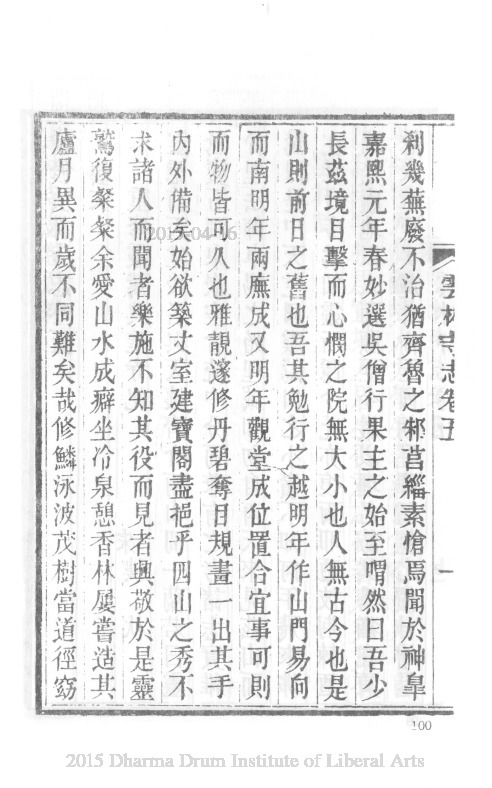 雲林寺志卷五
一
剎幾蕪廢不治猶齊魯之邾莒緇素愴焉聞於神臯
嘉熙元年春妙選吳僧行果主之始至喟然曰吾少
長茲境目擊而心憫之院無大小也人無古今也是
山則前日之舊也吾其勉行之越明年作山門易向
而南明年兩廡成又明年觀堂成位置合宜事可則
而物皆可久也雅靚邃修丹碧奪日規畫一出其手
內外備矣始欲築丈室建寶閣盡挹乎四山之秀不
求諸人而聞者樂施不知其役而見者興敬於是靈
鷲復粲粲余愛山水成癖坐冷泉憩香林屢嘗造其
廬月異而歲不同難矣哉修鱗泳波茂樹當道徑窈
100
2015 Dharma Drum Institute of Liberal Arts